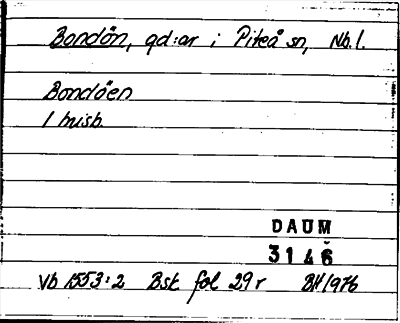 Bondön, gd:ar i Piteå sn, Nb. l.
Bondöen
1 husb.
DAUM
3146
Vb 1553:2 Bsk fol 29 r BH 1976